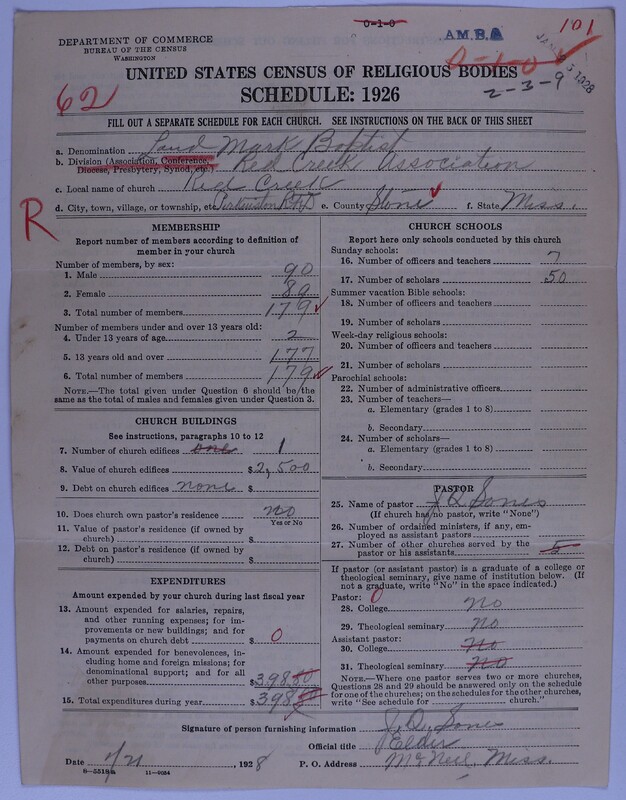 0-1-0
A.M.B.A
101
DEPARTMENT OF COMMERCE
BUREAU OF THE CENSUS
WASHINGTON
0-1-0
JAN 1928
2-3-9
UNITED STATES CENSUS OF RELIGIOUS BODIES
62
SCHEDULE: 1926
FILL OUT A SEPARATE SCHEDULE FOR EACH CHURCH. SEE INSTRUCTIONS ON THE BACK OF THIS SHEET
a. Denomination Land Mark Baptist
b. Division (Association, Conference, Diocese, Presbytery, Synod, etc.) Red Creek Association
c. Local name of church Red Creek
d. City, town, village, or township, etc. Perkinston RFD e. County Stone f. State Miss.
R
MEMBERSHIP
Report number of members according to definition of
member in your church
Number of members, by sex:
1. Male 90
2. Female 89
3. Total number of members 179
Number of members under and over 13 years old:
4. Under 13 years of age 2
5. 13 years old and over 177
6. Total number of members 179
NOTE.—The total given under Question 6 should be the
same as the total of males and females given under Question 3.
CHURCH BUILDINGS
See instructions, paragraphs 10 to 12
7. Number of church edifices one 1
8. Value of church edifices $2,500
9. Debt on church edifices none $
10. Does church own pastor's residence no
Yes or No
11. Value of pastor's residence (if owned by
church) $
12. Debt on pastor's residence (if owned by
church) $
EXPENDITURES
Amount expended by your church during last fiscal year
13. Amount expended for salaries, repairs,
and other running expenses; for im-
provements or new buildings; and for
payments on church debt $ 0
14. Amount expended for benevolences, in-
cluding home and foreign missions; for
denominational support; and for all
other purposes $398 50
15. Total expenditures during year $398 50
CHURCH SCHOOLS
Report here only schools conducted by this church
Sunday schools:
16. Number of officers and teachers 7
17. Number of scholars 50
Summer vacation Bible schools:
18. Number of officers and teachers
19. Number of scholars
Week-day religious schools:
20. Number of officers and teachers
21. Number of scholars
Parochial schools:
22. Number of administrative officers
23. Number of teachers—
a. Elementary (grades 1 to 8)
b. Secondary
24. Number of scholars—
a. Elementary (grades 1 to 8)
b. Secondary
PASTOR
25. Name of pastor J Q Sones
(If church has no pastor, write "None")
26. Number of ordained ministers, if any, em-
ployed as assistant pastors
27. Number of other churches served by the
pastor or his assistants 5
If pastor (or assistant pastor) is a graduate of a college or
theological seminary, give name of institution below. (If
not a graduate, write "No" in the space indicated.)
Pastor: 0
28. College no
29. Theological seminary no
Assistant pastor:
30. College no
31. Theological seminary no
NOTE.—Where one pastor serves two or more churches,
Questions 28 and 29 should be answered only on the schedule
for one of the churches; on the schedules for the other churches,
write "See schedule for church."
Signature of person furnishing information J. Q. Sones
Official title Elder
Date 1/21, 1928 P. O. Address McNeil, Miss.
8-5518a 11-9054